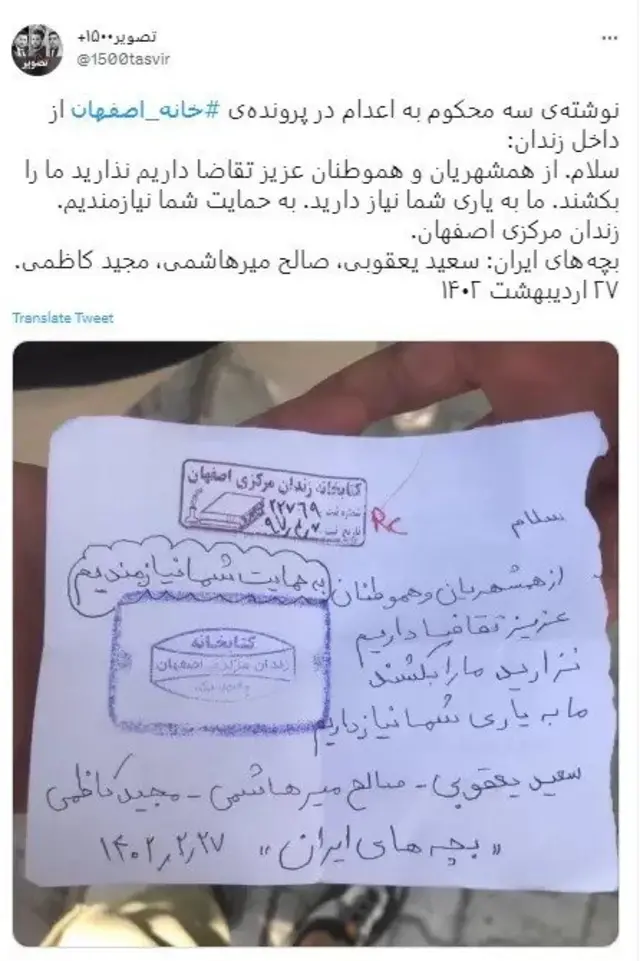 تصویر۱۵۰۰+
@1500tasvir
نوشته‌ی سه محکوم به اعدام در پرونده‌ی #خانه_اصفهان از
داخل زندان:
سلام. از همشهریان و هموطنان عزیز تقاضا داریم نذارید ما را
بکشند. ما به یاری شما نیاز دارید. به حمایت شما نیازمندیم.
زندان مرکزی اصفهان.
بچه‌های ایران: سعید یعقوبی، صالح میرهاشمی، مجید کاظمی.
۲۷ اردیبهشت ۱۴۰۲
Translate Tweet
کتابخانه زندان مرکزی اصفهان
شماره ثبت ۲۲۷۶۹
تاریخ ثبت
RC
سلام
از همشهریان و هموطنان
به حمایت شما نیازمندیم
عزیز تقاضا داریم
نزارید ما را بکشند
ما به یاری شما نیاز داریم
کتابخانه
زندان مرکزی اصفهان
سعید یعقوبی - صالح میرهاشمی - مجید کاظمی
«بچه های ایران» ۱۴۰۲٫۲٫۲۷